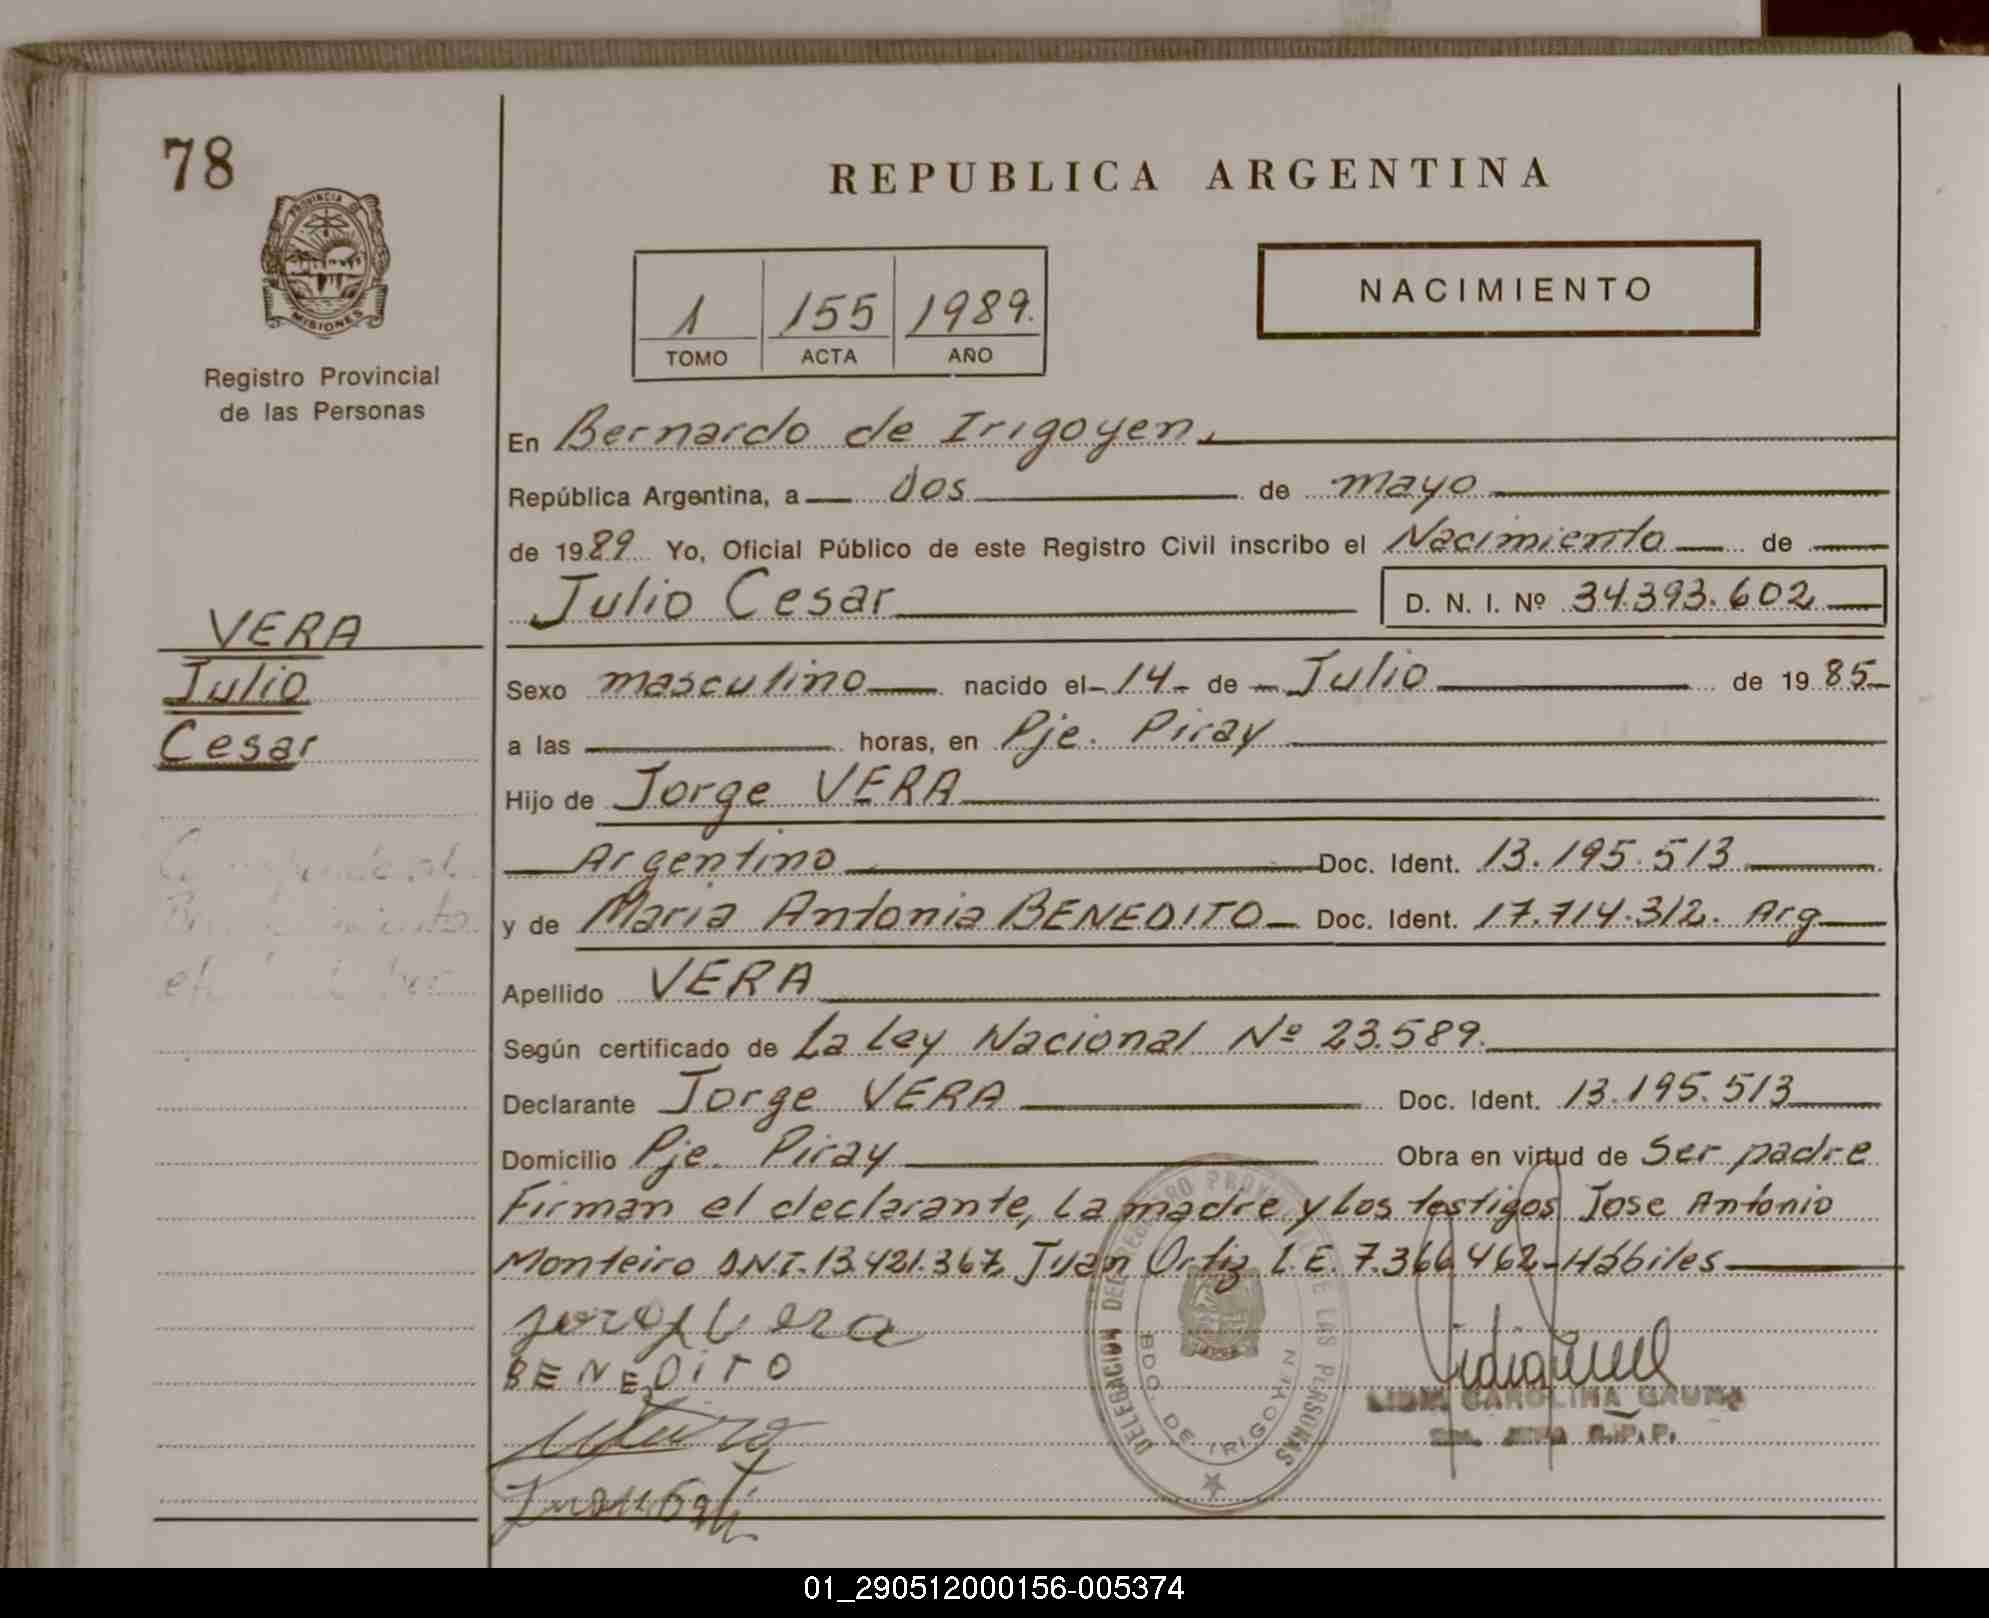 78
PROVINCIA DE
MISIONES
Registro Provincial
de las Personas
REPUBLICA ARGENTINA
1 155 1989.
TOMO ACTA AÑO
NACIMIENTO
En Bernardo de Irigoyen.
República Argentina, a dos de mayo
de 1989 Yo, Oficial Público de este Registro Civil inscribo el Nacimiento de
Julio Cesar D. N. I. Nº 34.393.602
VERA
Julio
Cesar
Sexo masculino nacido el 14 de Julio de 1985
a las horas, en Pje. Piray
Hijo de Jorge VERA
Argentino Doc. Ident. 13.195.513
y de Maria Antonia BENEDITO Doc. Ident. 17.714.312. Arg
Apellido VERA
Según certificado de La Ley Nacional Nº 23.589.
Declarante Jorge VERA Doc. Ident. 13.195.513
Domicilio Pje. Piray Obra en virtud de Ser padre
Firman el declarante, La madre y Los testigos Jose Antonio
Monteiro D.N.I. 13.421.367, Juan Ortiz L.E. 7.366.462-Hábiles
BENEDITO
DELEGACION DEL REGISTRO PROVINCIAL DE LAS PERSONAS
BDO. DE IRIGOYEN
01_290512000156-005374